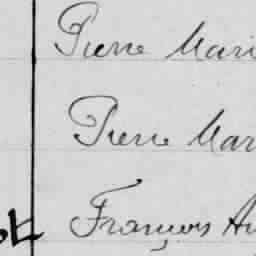 Pierre Mari
Pierre Mar
François Au